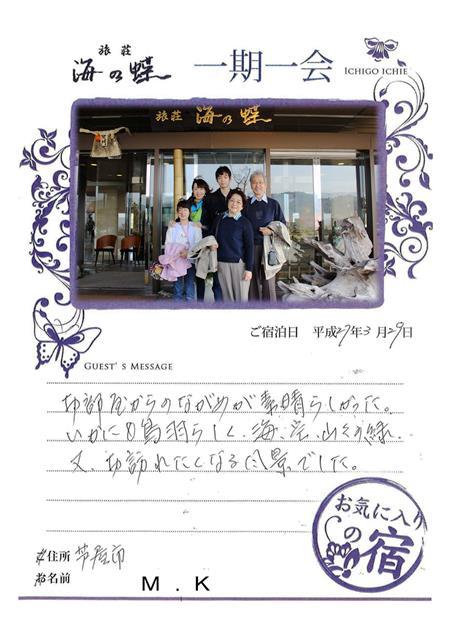 旅荘
海の蝶
一期一会
ICHIGO ICHIE
旅荘 海の蝶
ご宿泊日 平成27年3月29日
GUEST' S MESSAGE
お部屋からのながめが素晴らしかった。
いかにも鳥羽らしく、海、空、山々の緑、
又、お訪れたくなる風景でした。
お気に入り
の宿
ご住所 芦屋市
お名前 M.K